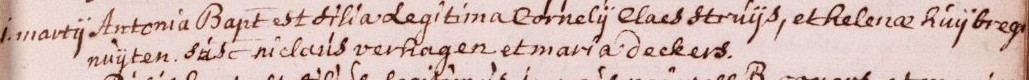 1. martij Antonia Bapt est filia legitima Cornelij Claes struijs, et helenæ huijbregs
nuijten. susc niclaus verhagen et maria deckers.